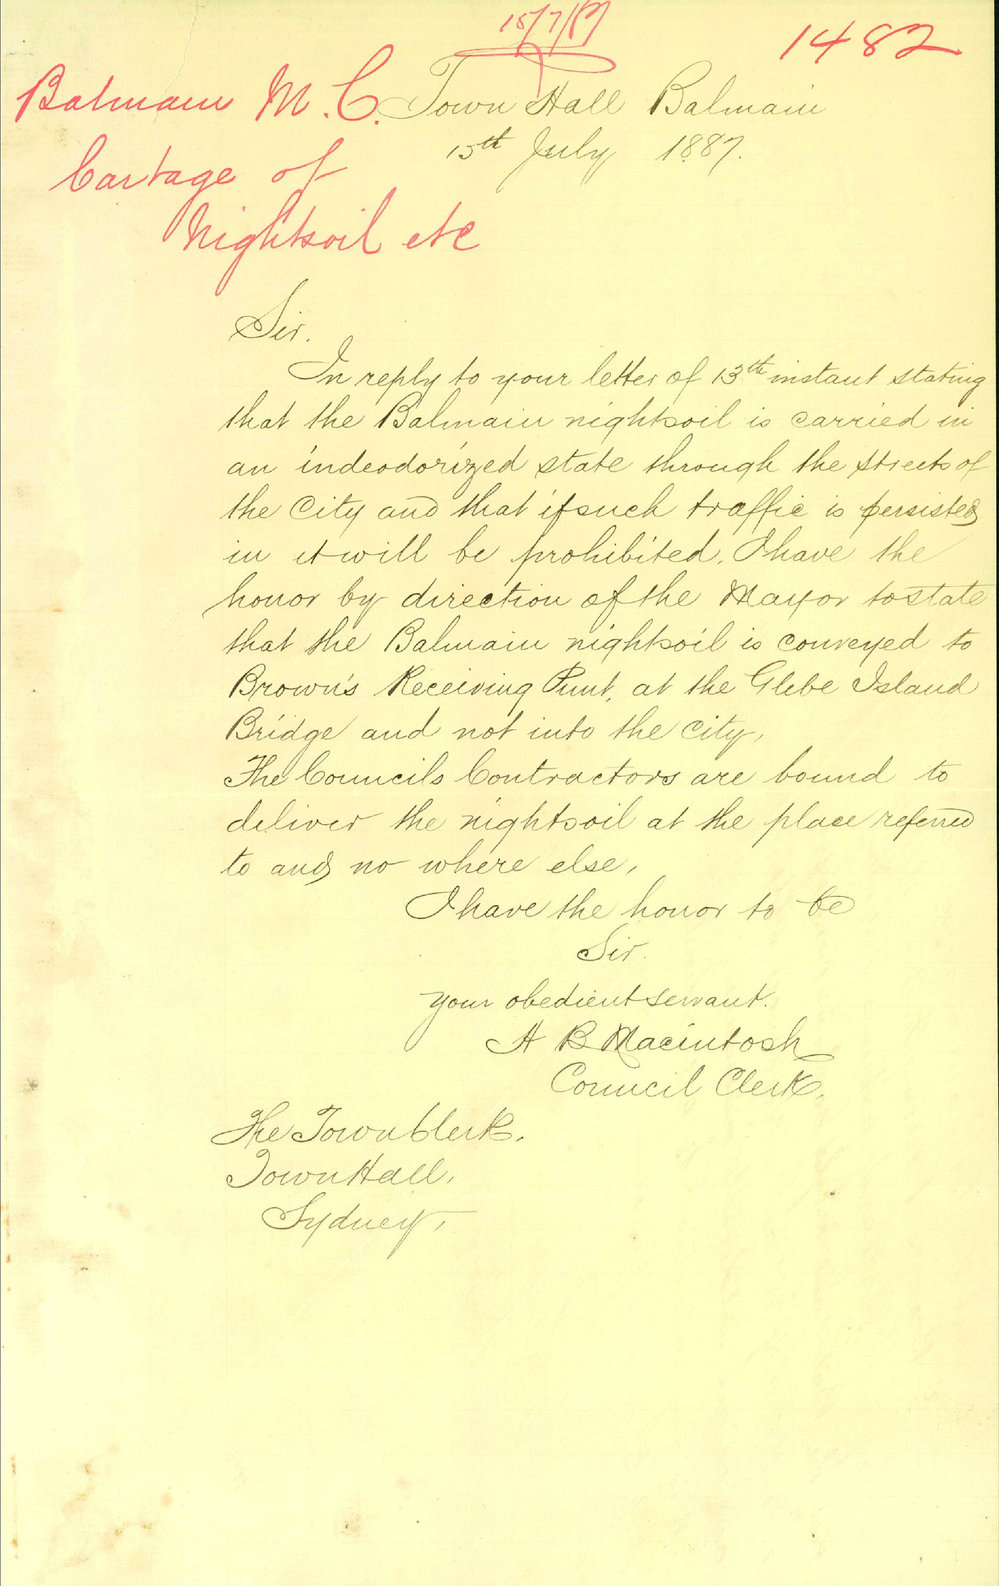 15/7/87
1482
Balmain M.C.
Cartage of
Nightsoil etc
Town Hall Balmain
15th July 1887.
Sir.
In reply to your letter of 13th instant stating
that the Balmain nightsoil is carried in
an indeodorized state through the streets of
the City and that if such traffic is persisted
in it will be prohibited. I have the
honor by direction of the Mayor to state
that the Balmain nightsoil is conveyed to
Brown's Receiving Punt, at the Glebe Island
Bridge and not into the city,
The Councils Contractors are bound to
deliver the nightsoil at the place referred
to and no where else,
I have the honor to be
Sir.
your obedient servant.
A B Macintosh
Council Clerk.
The Town Clerk.
Town Hall,
Sydney,